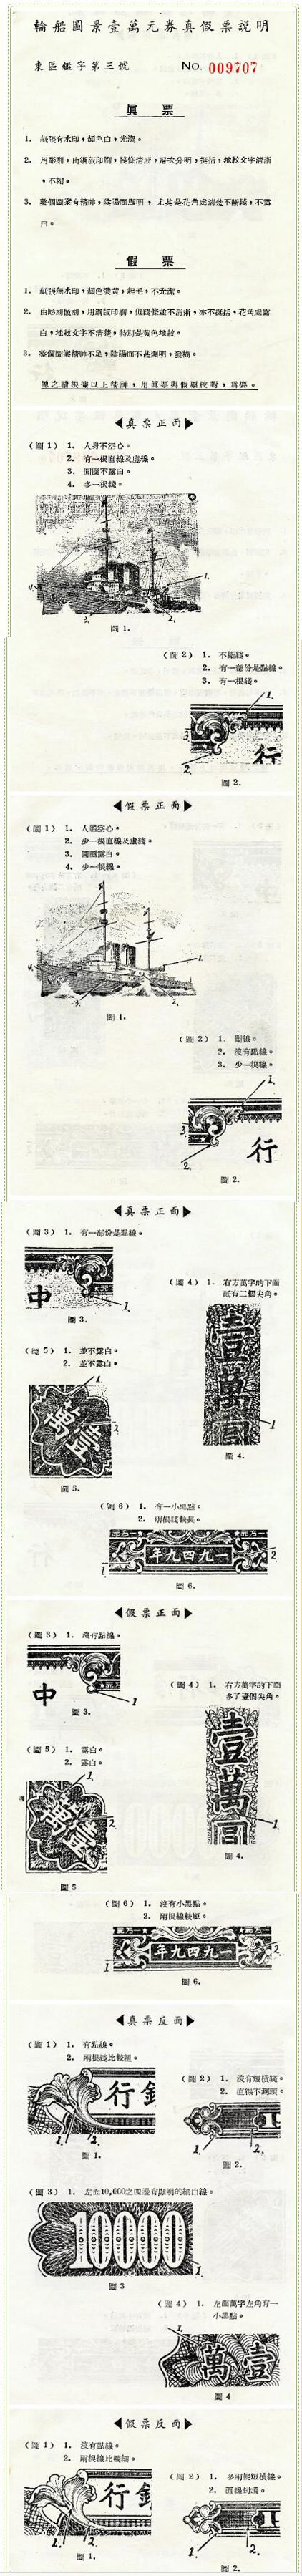 輪船圖景壹萬元券真假票說明
東區鑑字第三號 No. 009707
眞票
1. 紙張有水印,顏色白,光潔。
2. 用彫刻,由鋼版印刷,綫條清晰,層次分明,挺括,地紋文字清晰
,不糊。
3. 整個圖案有精神,陰陽面顯明,尤其是花角處清楚不斷綫,不露
白。
假票
1. 紙張無水印,顏色發黃,起毛,不光潔。
2. 由彫刻倣刻,用鋼版印刷,但綫條並不清晰,亦不挺括,花角處露
白,地紋文字不清楚,特別是黃色地紋。
3. 整個圖案精神不足,陰陽面不甚顯明,發糊。
總之請根據以上精神,用眞票與假票校對,為要。
◀真票正面▶
(圖1) 1. 人身不空心。
2. 有一根直綫及虛綫。
3. 圓圈不露白。
4. 多一根綫。
1.
2.
3.
4.
圖1.
(圖2) 1. 不斷綫。
2. 有一部份是點綫。
3. 有一根綫。
1.
3
2.
行
圖2.
◀假票正面▶
(圖1) 1. 人體空心。
2. 少一根直綫及虛綫。
3. 圓圈露白。
4. 少一根綫。
1.
2.
3.
4.
圖1.
(圖2) 1. 斷綫。
2. 沒有點綫。
3. 少一根綫。
1.
3
2.
行
圖2.
◀真票正面▶
(圖3) 1. 有一部份是點綫。
中
1.
圖3.
(圖4) 1. 右方萬字的下面
祇有二個尖角。
壹萬圓
1
圖4.
(圖5) 1. 並不露白。
2. 並不露白。
1.
2.
壹萬
圖5.
(圖6) 1. 有一小黑點。
2. 兩根綫較長。
一九四九年
1.
2.
圖6.
◀假票正面▶
(圖3) 1. 沒有點綫。
中
1
圖3.
(圖4) 1. 右方萬字的下面
多了壹個尖角。
壹萬圓
1.
圖4.
(圖5) 1. 露白。
2. 露白。
1.
2.
壹萬
圖5
(圖6) 1. 沒有小黑點。
2. 兩根綫較短。
一九四九年
1
2.
圖6.
◀真票反面▶
(圖1) 1. 有點綫。
2. 兩根綫比較粗。
行銀
1.
2.
圖1.
(圖2) 1. 沒有短橫綫。
2. 直綫不到頭。
1.
2.
圖2.
(圖3) 1. 左面10,000之四邊有顯明的細白綫。
10000
1.
圖3
(圖4) 1. 左面萬字左角有一
小黑點。
1.
萬壹
圖4
◀假票反面▶
(圖1) 1. 沒有點綫。
2. 兩根綫比較細。
行銀
1.
2.
圖1.
(圖2) 1. 多兩根短橫綫。
2. 直綫到頭。
1.
2.
圖2.